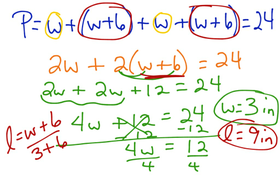 P = w + (w+6) + w + (w+6) = 24
2w + 2(w+6) = 24
2w + 2w + 12 = 24
4w + 12 = 24
-12 -12
4w/4 = 12/4
w = 3 in
l = w+6
3+6
l = 9 in